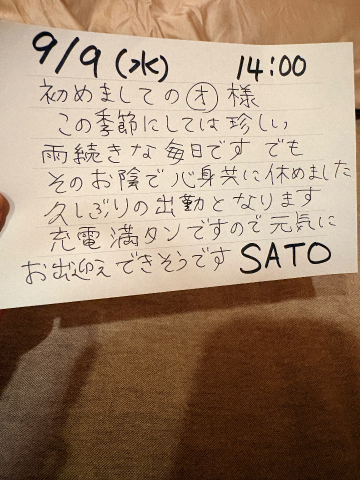 9/9(水) 14:00
初めましての㋔様
この季節にしては珍しい
雨続きな毎日です でも
そのお陰で心身共に休めました
久しぶりの出勤となります
充電満タンですので元気に
お出迎えできそうです SATO